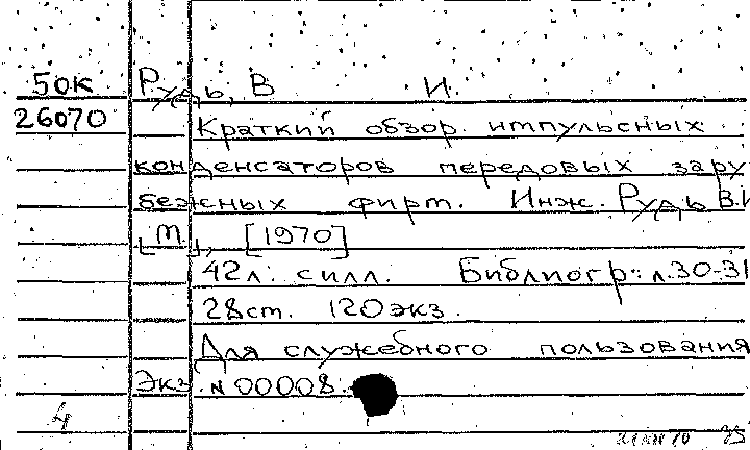 50к Рудь, В И.
26070 Краткий обзор импульсных
конденсаторов передовых зару
бежных фирм. Инж. Рудь В.И
[М.], [1970]
42л. с илл. Библиогр: л.30-31
28см. 120экз.
Для служебного пользования
Экз. N 00008.
4